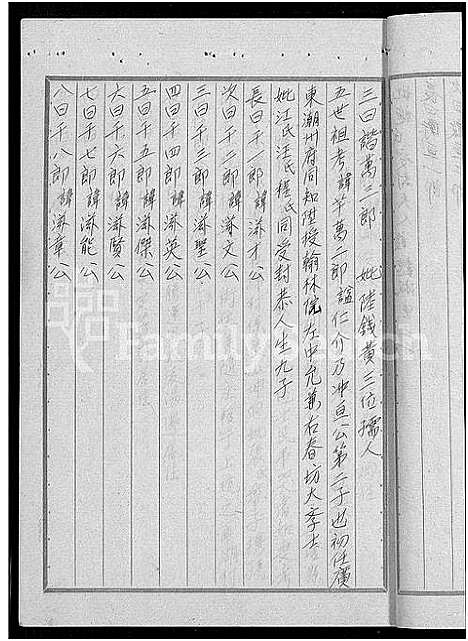 三曰諧萬三郎　妣陸錢黄三位孺人
五世祖考諱芊萬二郎諡仁介乃冲亘公第二子也初任廣
東潮州府同知陞授翰林院左中允兼右春坊大學士
妣江氏汪氏程氏同受封恭人生九子
長曰千一郎諱滋才公
次曰千二郎諱滋文公
三曰千三郎諱滋聖公
四曰千四郎諱滋英公
五曰千五郎諱滋傑公
六曰千六郎諱滋賢公
七曰千七郎諱滋能公
八曰千八郎諱滋章公